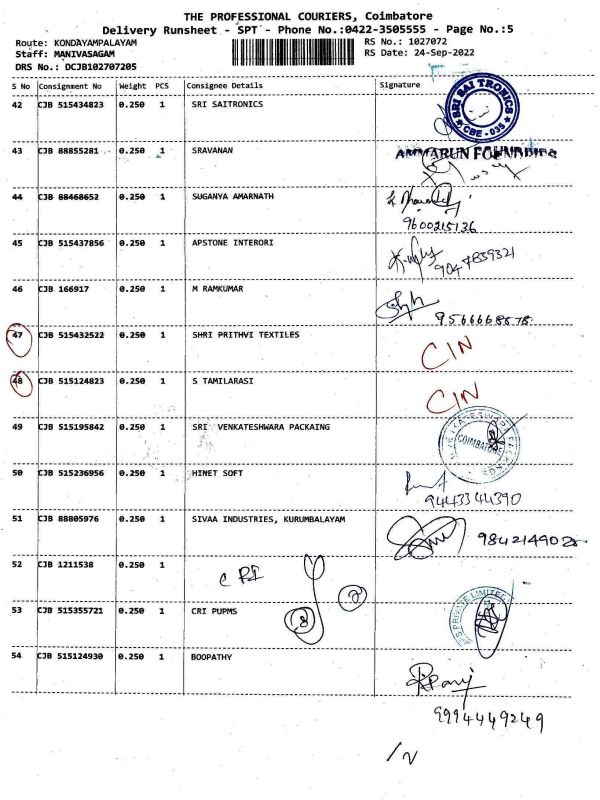 THE PROFESSIONAL COURIERS, Coimbatore
Delivery Runsheet - SPT - Phone No.:0422-3505555 - Page No.:5
Route: KONDAYAMPALAYAM
RS No.: 1027072
Staff: MANIVASAGAM
RS Date: 24-Sep-2022
DRS No.: DCJB102707205
S No Consignment No Weight PCS Consignee Details Signature
42 CJB 515434823 0.250 1 SRI SAITRONICS
SRI SAI TRONICS
CBE - 035
43 CJB 88855281 0.250 1 SRAVANAN
44 CJB 88468652 0.250 1 SUGANYA AMARNATH
9600215136
45 CJB 515437856 0.250 1 APSTONE INTERORI
46 CJB 166917 0.250 1 M RAMKUMAR
47 CJB 515432522 0.250 1 SHRI PRITHVI TEXTILES
CIN
48 CJB 515124823 0.250 1 S TAMILARASI
CIN
49 CJB 515195842 0.250 1 SRI VENKATESHWARA PACKAING
COIMBATORE
50 CJB 515236956 0.250 1 HINET SOFT
9443344390
51 CJB 88805976 0.250 1 SIVAA INDUSTRIES, KURUMBALAYAM
52 CJB 1211538 0.250 1
CRI
53 CJB 515355721 0.250 1 CRI PUPMS
PRIVATE LIMITED
54 CJB 515124930 0.250 1 BOOPATHY
9994449249